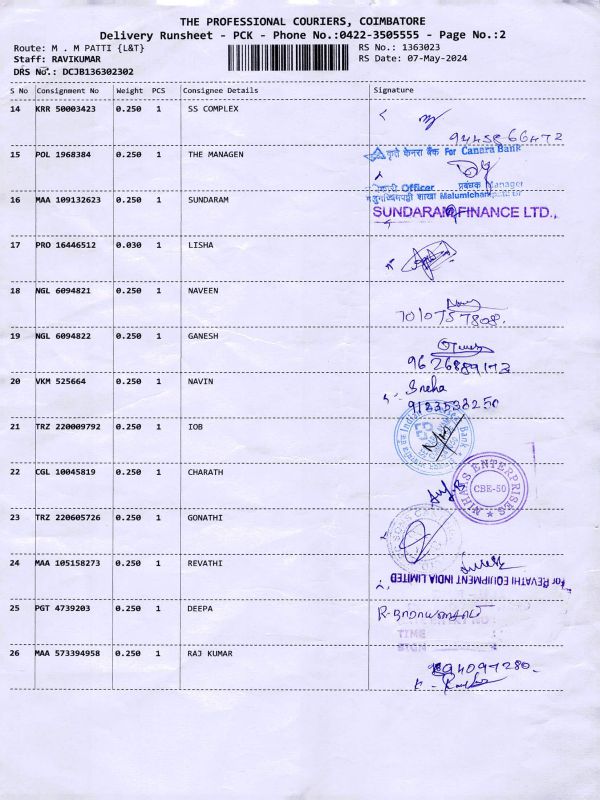 THE PROFESSIONAL COURIERS, COIMBATORE
Delivery Runsheet - PCK - Phone No.:0422-3505555 - Page No.:2
Route: M . M PATTI {L&T}
RS No.: 1363023
Staff: RAVIKUMAR
RS Date: 07-May-2024
DRS No.: DCJB136302302
S No Consignment No Weight PCS Consignee Details Signature
14 KRR 50003423 0.250 1 SS COMPLEX
9445866472
15 POL 1968384 0.250 1 THE MANAGEN
कृते केनरा बैंक For Canara Bank
Officer प्रबंधक Manager
शाखा Malumichampatti Br
16 MAA 109132623 0.250 1 SUNDARAM
SUNDARAM FINANCE LTD.,
17 PRO 16446512 0.030 1 LISHA
18 NGL 6094821 0.250 1 NAVEEN
7010757808.
19 NGL 6094822 0.250 1 GANESH
9626889173
20 VKM 525664 0.250 1 NAVIN
Sneha
9123538250
21 TRZ 220009792 0.250 1 IOB
22 CGL 10045819 0.250 1 CHARATH
NIHAAS ENTERPRISES
CBE-50
23 TRZ 220605726 0.250 1 GONATHI
24 MAA 105158273 0.250 1 REVATHI
For REVATHI EQUIPMENT INDIA LIMITED
25 PGT 4739203 0.250 1 DEEPA
TIME
SIGN
26 MAA 573394958 0.250 1 RAJ KUMAR